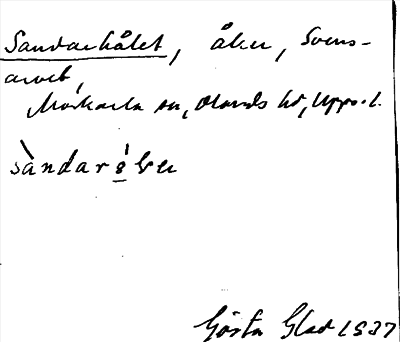 Sandarhålet, åker, Svens-
arvet,
Morkarla sn, Olands hd, Upps. l.
sàndar
Gösta Glad 1937